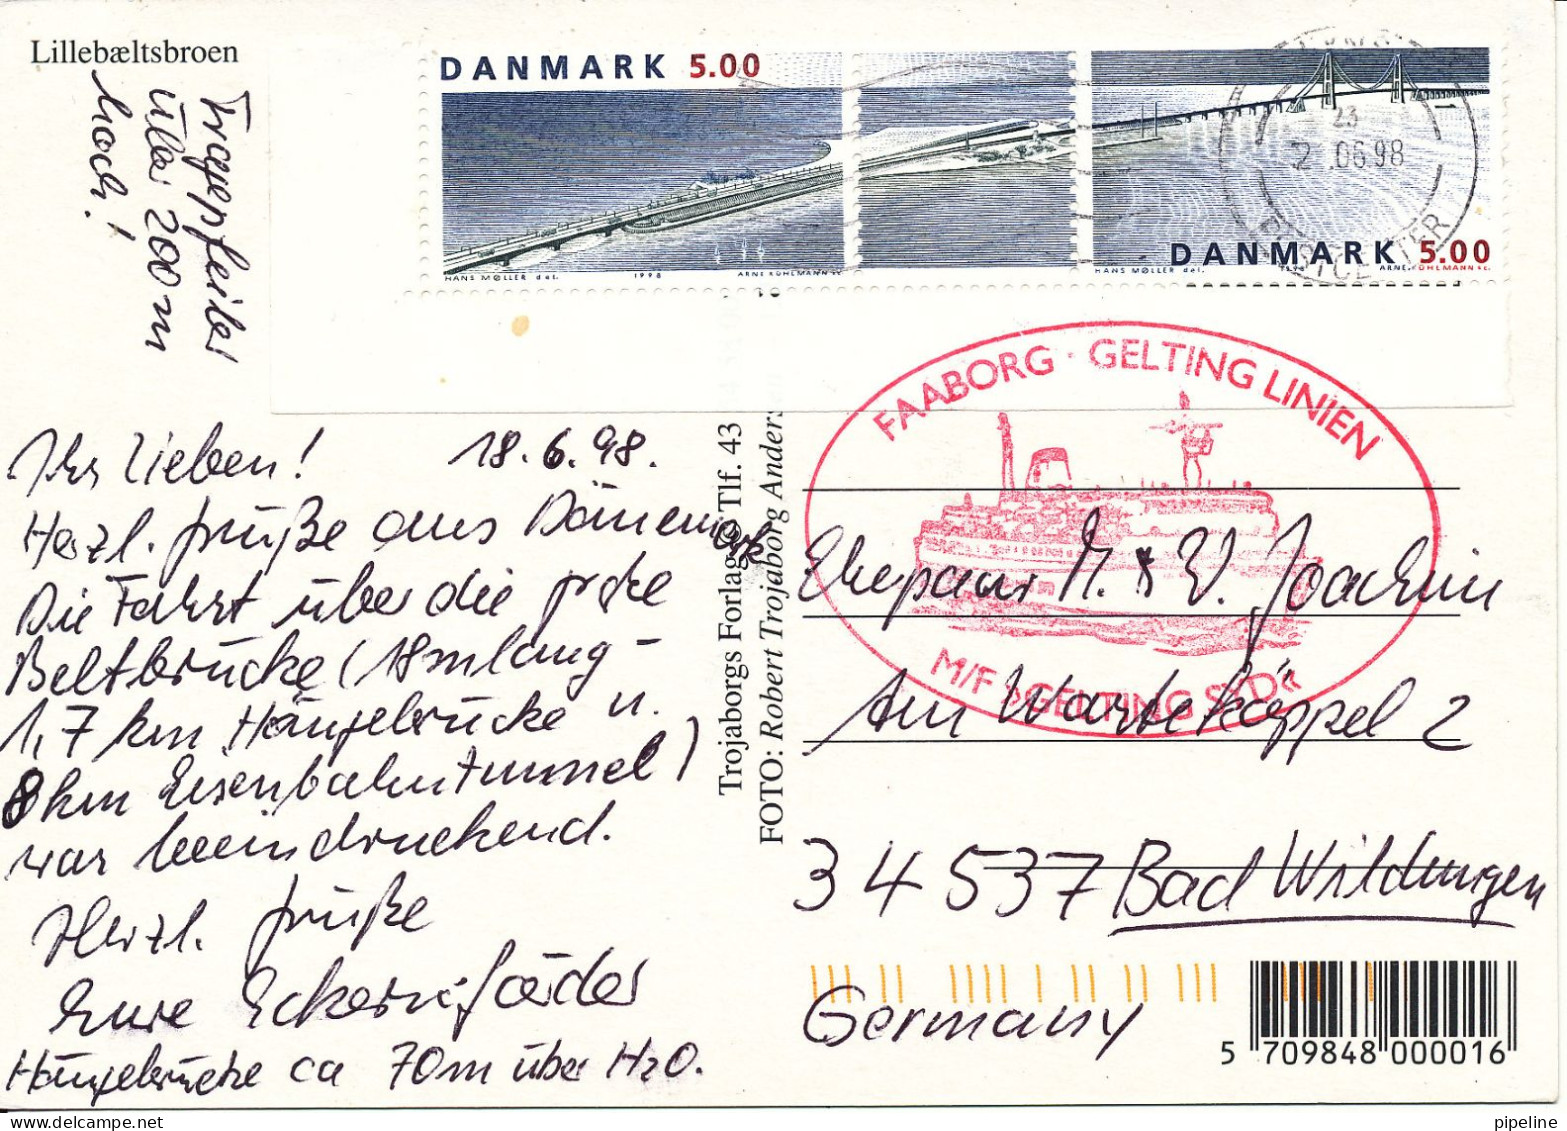 Lillebæltsbroen
DANMARK 5.00
HANS MØLLER del. 1998 ARNE KÜHLMANN sc.
DANMARK 5.00
HANS MØLLER del. 1998 ARNE KÜHLMANN sc.
23
2 .06.98
1
POSTCENTER
Tragepfeiler
über 200 m
hoch!
FAABORG · GELTING LINIEN
M/F »GELTING SYD«
Ihr Lieben! 18.6.98.
Herzl. Grüße aus Dänemark
Die Fahrt über die große
Beltbrücke (18km lang –
1,7 km Hängebrücke u.
8km Eisenbahntunnel)
war beeindruckend.
Herzl. Grüße
Eure Eckernförder
Hängebrücke ca 70m über H2O.
Trojaborgs Forlag Tlf. 43
FOTO: Robert Trojaborg Anders
Ehepaar M. & W. Joachim
Am Warteköppel 2
34537 Bad Wildungen
Germany
5 709848 000016
pipeline